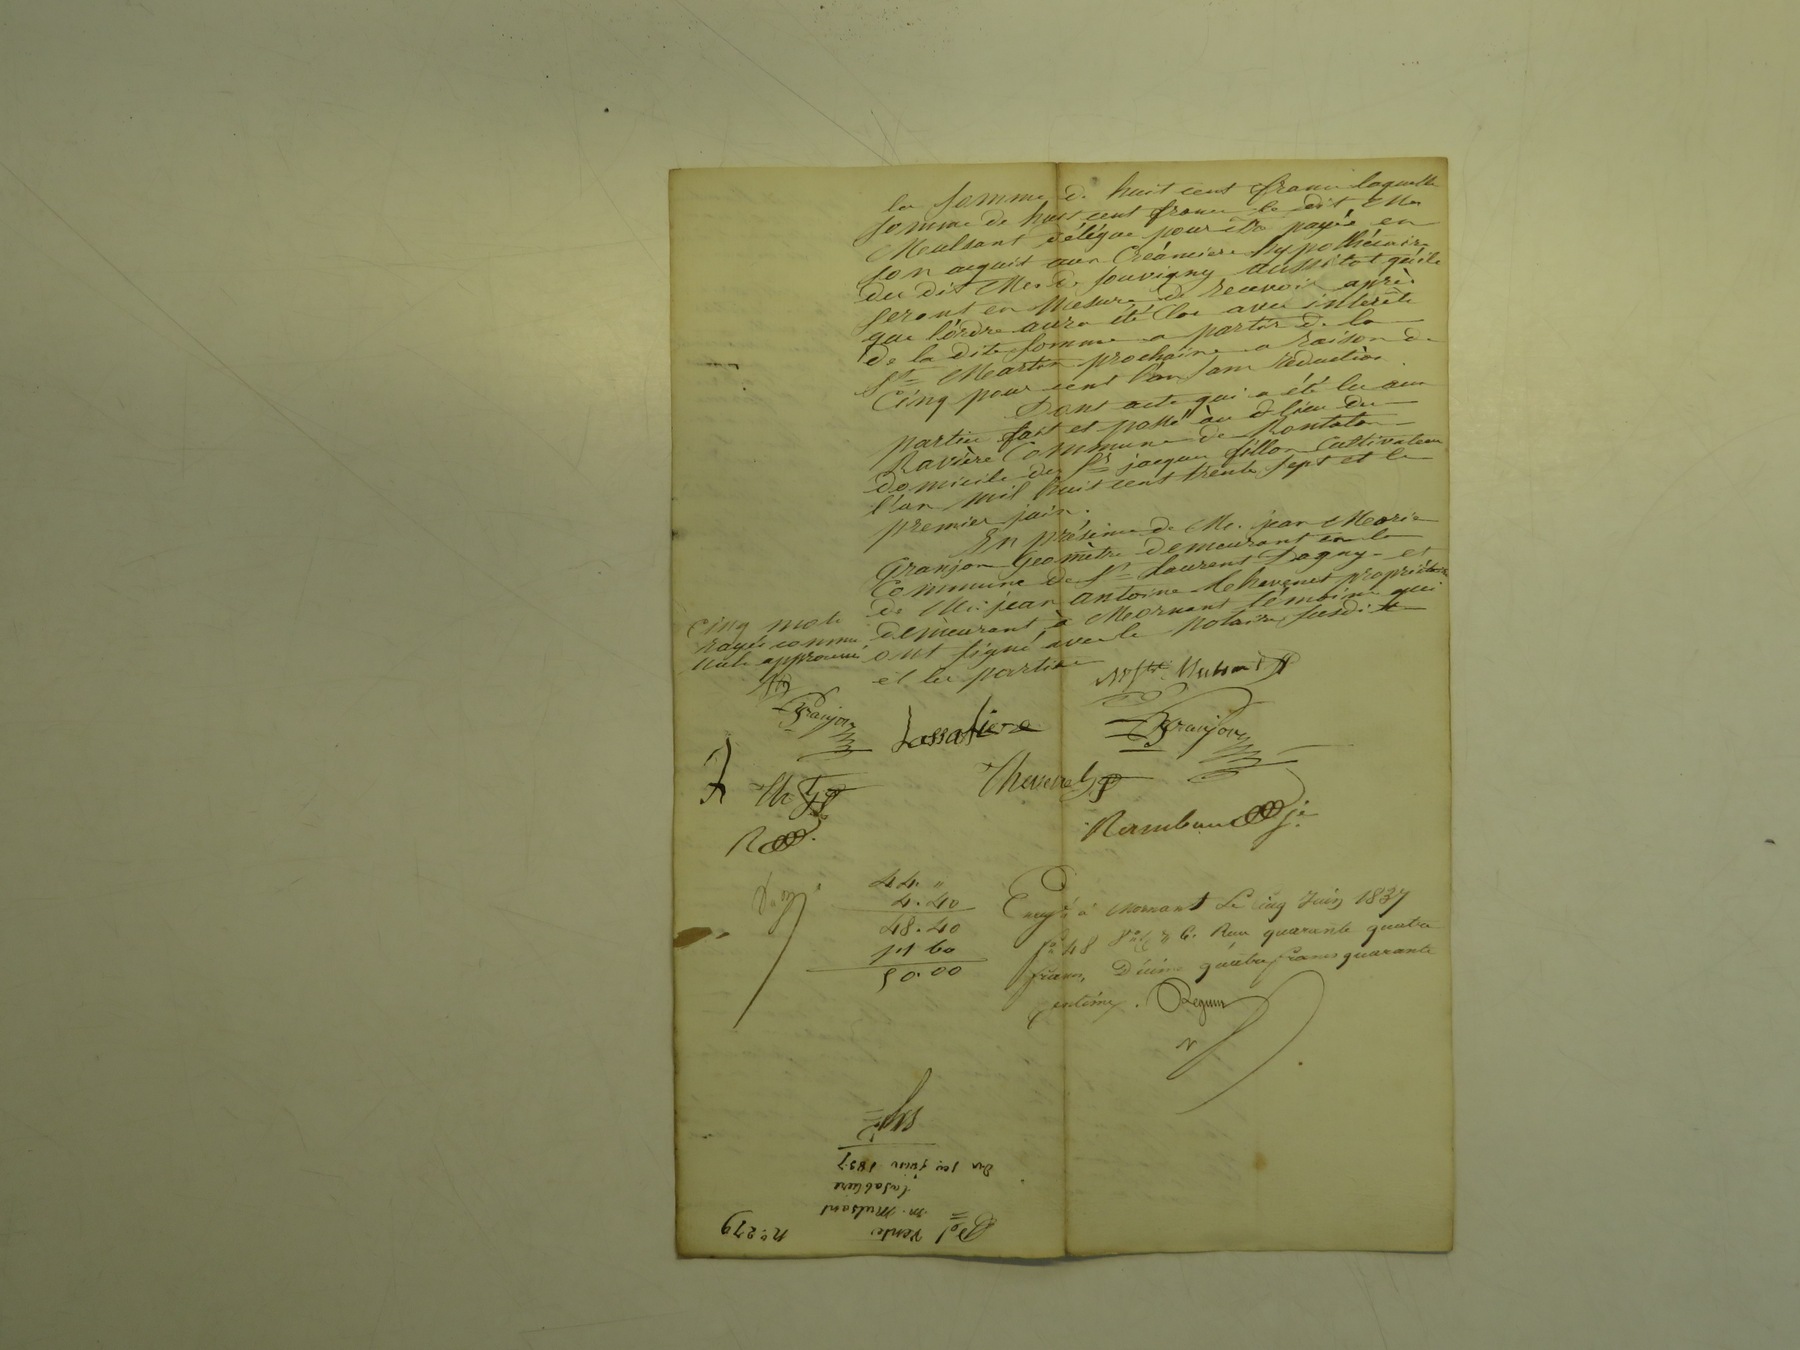 la somme de huit cent francs laquelle
somme de huit cent francs le dit Mr
Mulsant délégue pour être payée en
son acquit aux Créanciers hypothécaire
du dit Mr. de Souvigny aussitot qu'ils
seront en mesure de recevoir après
que l'ordre aura été clos avec intérêts
de la dite somme a partir de la
St Martin prochaine a raison de
Cinq pour cent l'an sans réduction
Dont acte qui a été lu aux
parties fait et passé au lieu de
Ravière Commune de
domicile de Sr jacque fillon Cultivateur
l'an mil huit cent trente sept et le
premier juin.
En présence de Mr. jean Marie
Granjon Géomètre demeurant en la
Commune de St Laurent Dagny et
de Mr jean antoine thevenet propriétaire
demeurant à Mornant témoins qui
ont signé avec le notaire susdit
et les parties
Cinq mots
rayés comme
nuls approuvé
Mulsant
Granjon
Lassablière
Granjon
Th
Thevenet
R
Rambaud je
44 "
4.40
48.40
1.60
50.00
Enregé à Mornant Le cinq Juin 1837
fo 48 Ro C. 6. Reçu quarante quatre
francs, Décime quatre francs quarante
centimes.
n°. 279
Vente
m. Mulsant
lasablière
Du 1er juin 1837